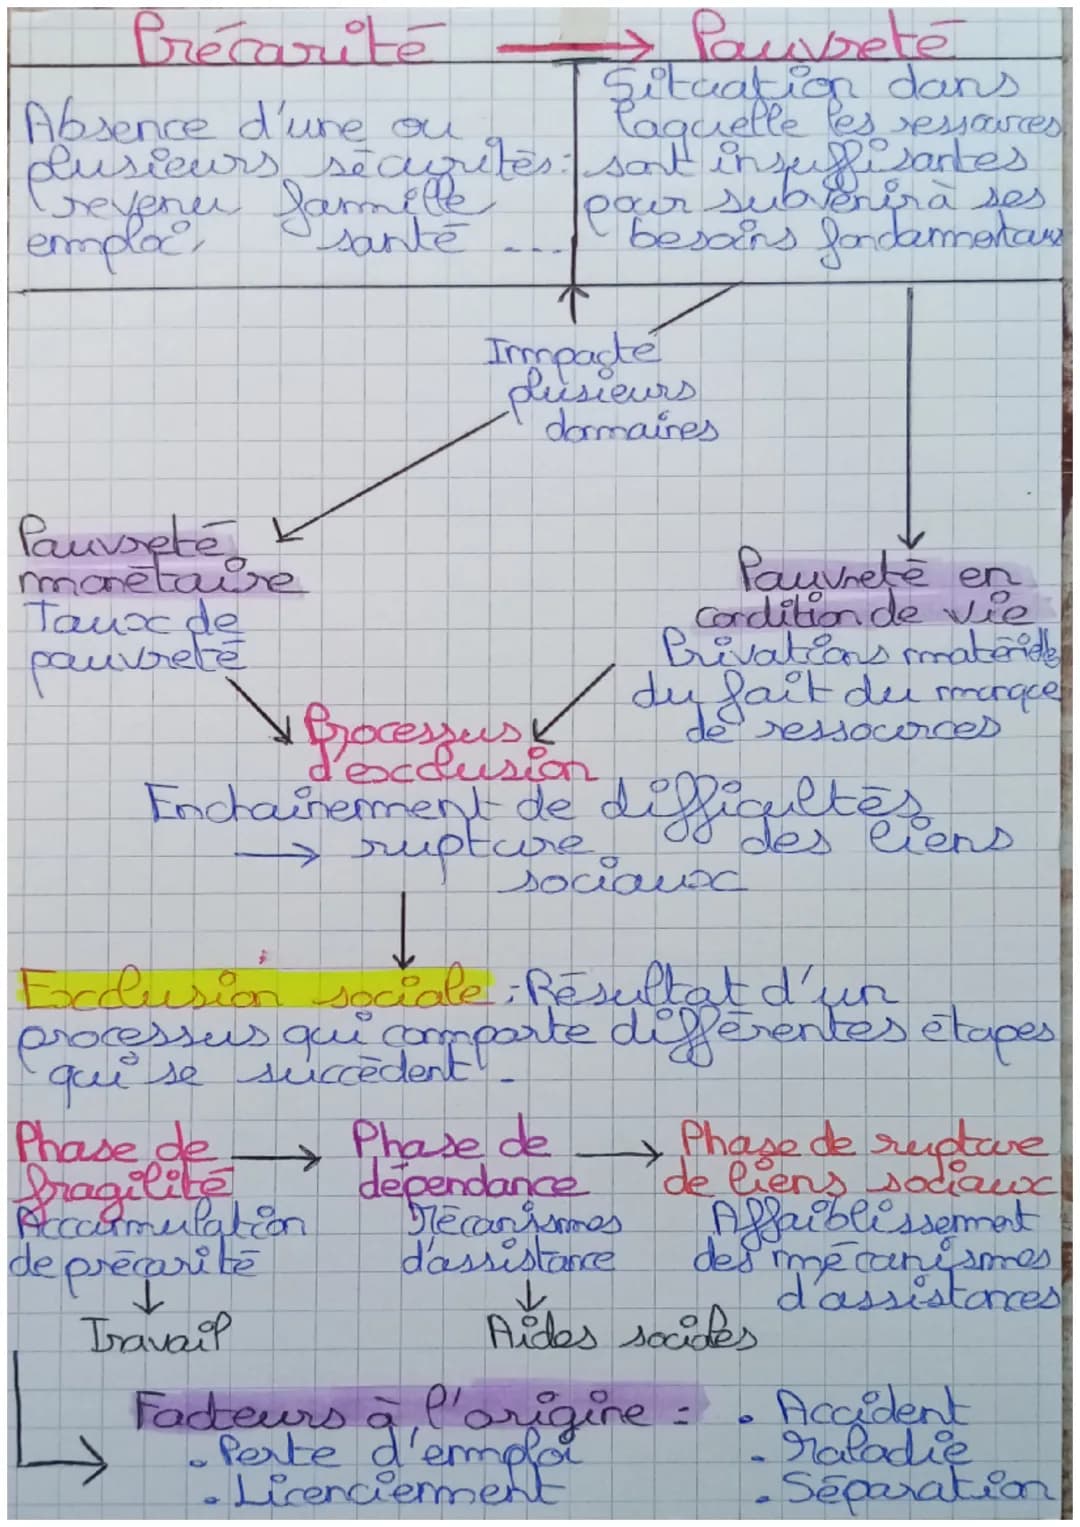 Précarité → Pauvreté
Absence d'une ou
plusieurs sécurités:
revenu famille
emploi, santé ...
Situation dans
laquelle les ressources
sont insuffisantes
pour subvenir à ses
besoins fondamentaux
Impacte
plusieurs
domaines
Pauvreté
monétaire
Taux de
pauvreté
Pauvreté en
condition de vie
Privations matérielles
du fait du manque
de ressources
Processus
d'exclusion
Enchaînement de difficultés
→ rupture des liens
sociaux
Exclusion sociale : Résultat d'un
processus qui comporte différentes étapes
qui se succèdent.
Phase de → Phase de → Phase de rupture
fragilité dépendance de liens sociaux
Accumulation Mécanismes Affaiblissement
de précarité d'assistance des mécanismes
d'assistances
Travail Aides sociales
Facteurs à l'origine : • Accident
• Perte d'emploi • Maladie
• Licenciement • Séparation